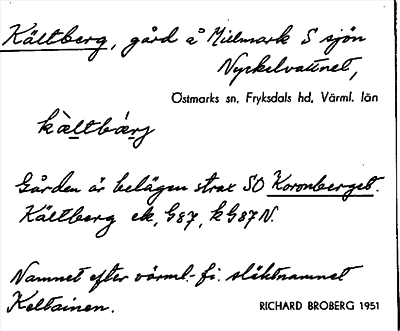 Kältberg, gård å Millmark S sjön
Nyckelvattnet,
Östmarks sn, Fryksdals hd, Värml. län
kä̀ltbá̈rj
Gården är belägen strax SO Koronberget.
Kältberg ek, G87, kG87N.
Namnet efter värml.-fi. släktnamnet
Keltainen.
RICHARD BROBERG 1951